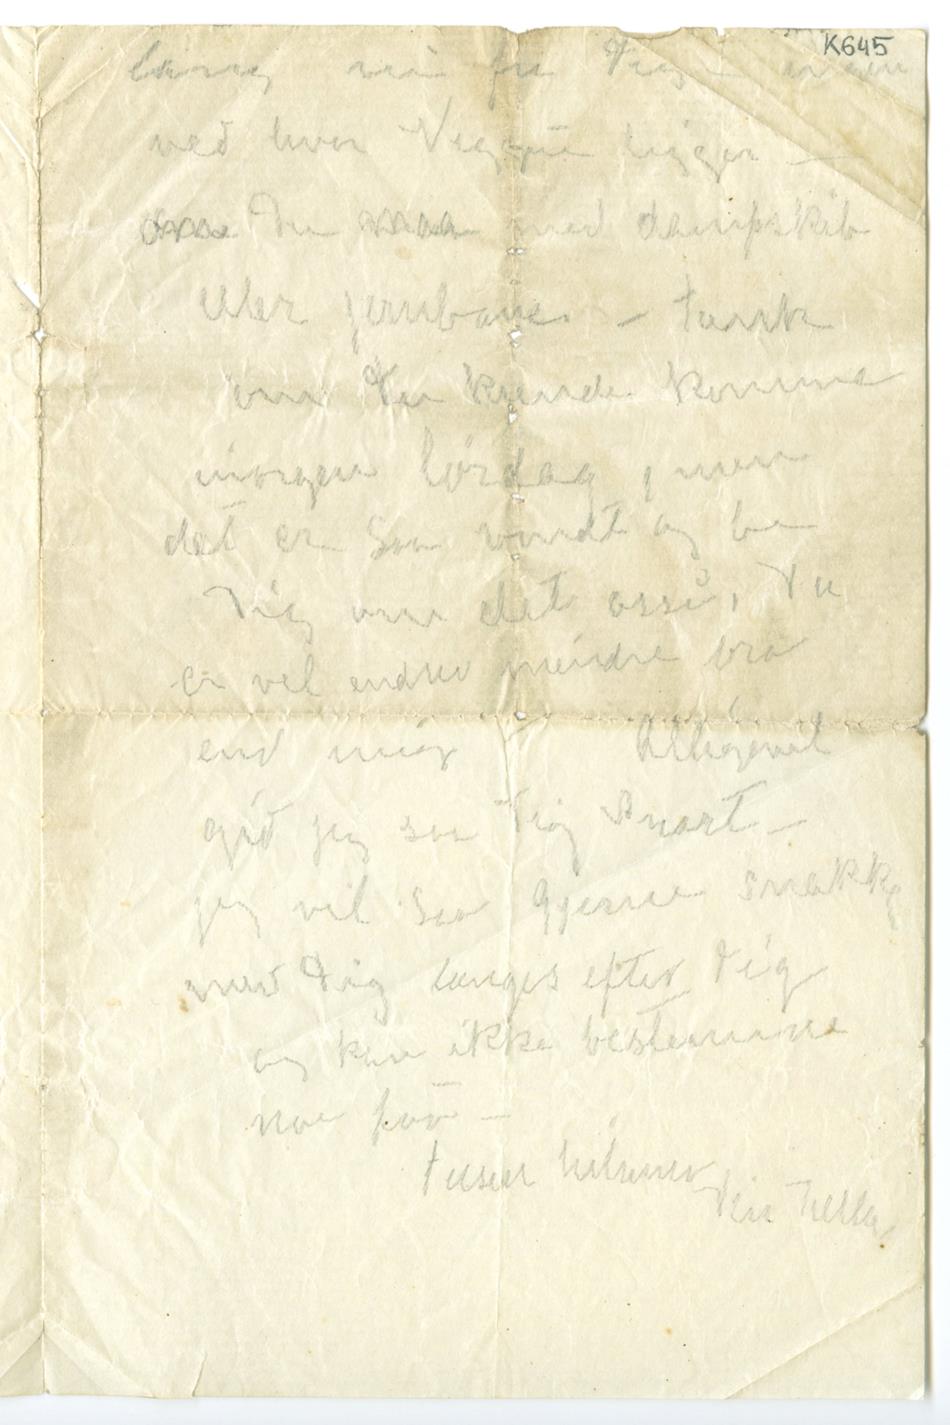 K645
lang vei fra Dig i
ved hvor Veggen ligger —
Du maa med dampskib
eller jernbane. — tænk
om Du kunde komme
imorgen lørdag, men
det er saa vondt og be
Dig om det osså, Du
er vel endnu mindre bra
end mig Alligevel
gid jeg saa Dig snart —
jeg vil saa gjerne snakke
med Dig længes efter Dig
og kan ikke bestemme
noe paa —
tusen hilsener
Din Tulla